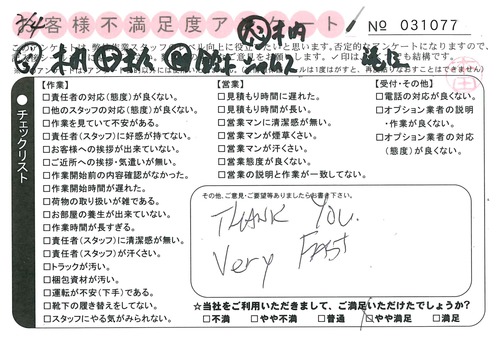 お客様不満足度アンケート
No 031077
このアンケートは、弊社作業スタッフのレベル向上に役立たいと思います。否定的なアンケートになりますので、
チェックリスト
【作業】
□責任者の対応(態度)が良くない。
□他のスタッフの対応(態度)が良くない。
□作業を見ていて不安がある。
□責任者(スタッフ)に好感が持てない。
□お客様への挨拶が出来ていない。
□ご近所への挨拶・気遣いが無い。
□作業開始前の内容確認がなかった。
□作業開始時間が遅れた。
□荷物の取り扱いが雑である。
□お部屋の養生が出来ていない。
□作業時間が長すぎる。
□責任者(スタッフ)に清潔感が無い。
□責任者(スタッフ)が汗さい。
□トラックが汚い。
□梱包資材が汚い。
□運転が不安(下手)である。
□靴下の履き替えをしてない。
□スタッフにやる気がみられない。
【営業】
□見積もり時間に遅れた。
□見積もり時間が長い。
□営業マンに清潔感が無い。
□営業マンが煙草くさい。
□営業マンが汗さい。
□営業態度が良くない。
□営業の説明と作業が一致してない。
【受付・その他】
□電話の対応が良くない。
□オプション業者の説明
・作業が良くない。
□オプション業者の対応
(態度)が良くない。
その他、ご意見・ご要望等ありましたらお書き下さい。
THANK YOU.
Very FAST
☆当社をご利用いただきまして、ご満足いただけたでしょうか?
□不満 □やや不満 □普通 □やや満足 □満足